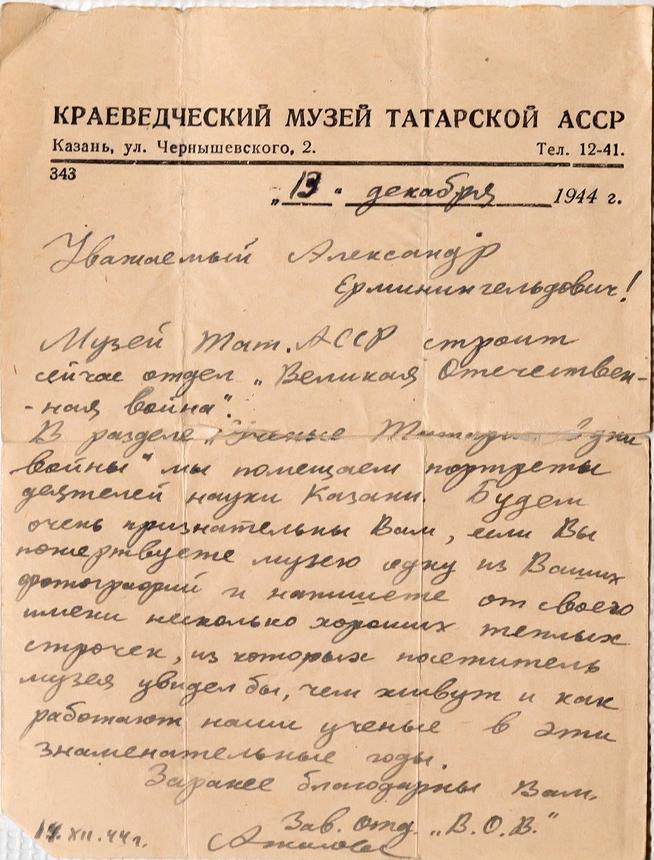 КРАЕВЕДЧЕСКИЙ МУЗЕЙ ТАТАРСКОЙ АССР
Казань, ул. Чернышевского, 2. Тел. 12-41.
343
„13" декабря 1944 г.
Уважаемый Александр
Ерминингельдович!
Музей Тат. АССР строит
сейчас отдел „Великая Отечествен-
-ная война".
В разделе „Ученые Татарии в дни
войны" мы помещаем портреты
деятелей науки Казани. Будем
очень признательны Вам, если Вы
пожертвуете музею одну из Ваших
фотографий и напишете от своего
имени несколько хороших теплых
строчек, из которых посетитель
музея увидел бы, чем живут и как
работают наши ученые в эти
знаменательные годы.
Заранее благодарны Вам.
Зав. отд. „В.О.В."
XII.44г.